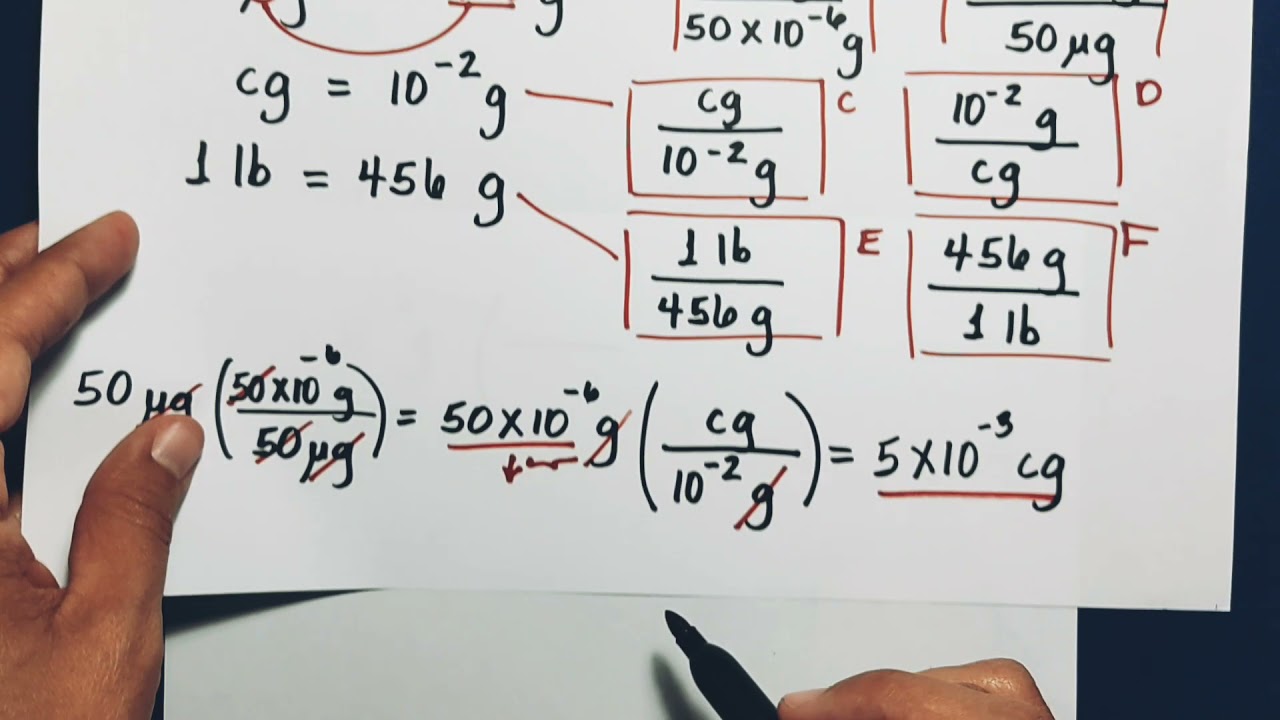 g
50 x 10⁻⁶ g
50 µg
cg = 10⁻² g
cg
10⁻² g
C
10⁻² g
cg
D
1 lb = 456 g
1 lb
456 g
E
456 g
1 lb
F
50 µg (50x10⁻⁶ g / 50 µg) = 50x10⁻⁶ g (cg / 10⁻² g) = 5x10⁻³ cg